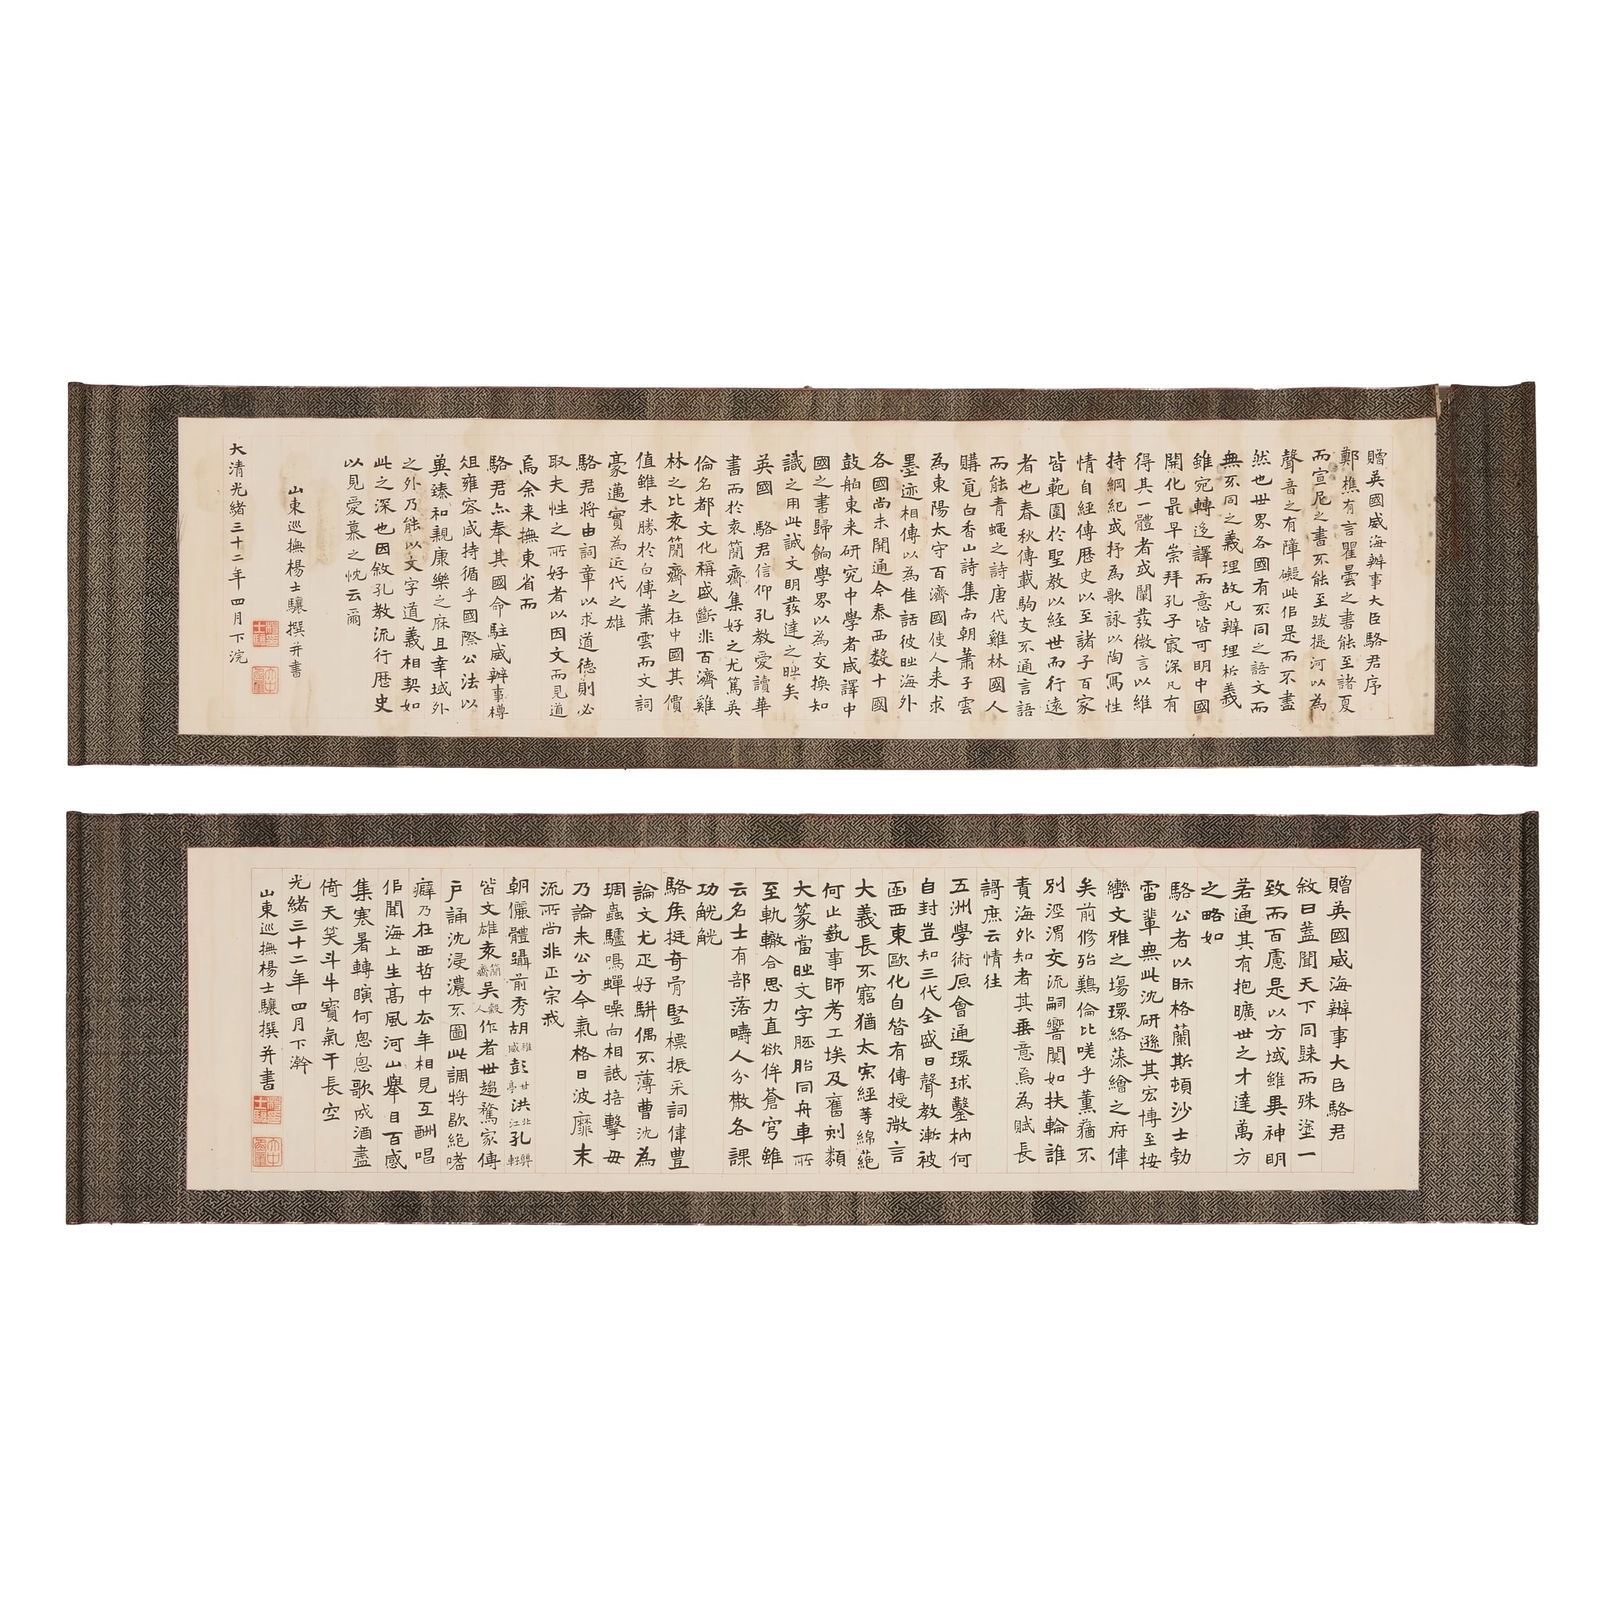 贈英國威海辦事大臣駱君序
鄭樵有言瞿曇之書能至諸夏
而宣尼之書不能至跋提河以為
聲音之有障礙此但是而不盡
然也世界各國有不同之語文而
無不同之義理故凡辨理析義
雖宛轉迻譯而意皆可明中國
開化最早崇拜孔子最深凡有
得其一體者或闡發微言以維
持綱紀或抒為歌詠以陶寫性
情自經傳歷史以至諸子百家
皆範圍於聖教以經世而行遠
者也春秋傳載駒支不通言語
而能青蠅之詩唐代雞林國人
購覓白香山詩集南朝蕭子雲
為東陽太守百濟國使人來求
墨迹相傳以為佳話彼時海外
各國尚未開通今泰西數十國
鼓舶東來研究中學者咸譯中
國之書歸餉學界以為交換知
識之用此誠文明發達之時矣
英國 駱君信仰孔教愛讀華
書而於袁簡齋集好之尤篤英
倫名都文化稱盛斷非百濟雞
林之比袁簡齋之在中國其價
值雖未勝於白傅蕭雲而文詞
豪邁實為近代之雄
駱君將由詞章以求道德則必
取夫性之所好者以因文而見道
焉余来撫東省而
駱君亦奉其國命駐威辦事樽
俎雍容咸持循乎國際公法以
冀臻和親康樂之庥且幸域外
之外乃能以文字道義相契如
此之深也因敘孔教流行歷史
以見愛慕之忱云爾
山東巡撫楊士驤撰并書
大清光緒三十二年四月下浣
贈英國威海辦事大臣駱君
敘曰蓋聞天下同歸而殊塗一
致而百慮是以方域雖異神明
若通其有抱曠世之才達萬方
之略如
駱公者以眎格蘭斯頓沙士勃
雷輩無此沈研遜其宏博至按
轡文雅之場環絡藻繪之府偉
矣前修殆鷄倫比嗟乎薰蕕不
別涇渭交流嗣響闃如扶輪誰
責海外知者其垂意焉為賦長
謌庶云情往
五洲學術原會通環球鑿枘何
自封豈知三代全盛日聲教漸被
函西東歐化自皆有傳授微言
大義長不窮猶太宗經等綿蕝
何止藝事師考工埃及舊刻類
大篆當時文字胚胎同舟車所
至軌轍合思力直欲侔蒼穹雖
云名士有部落疇人分檄各課
功觥觥
駱侯挺奇骨豎標振采詞偉豊
論文尤疋好駢偶不薄曹沈為
琱蟲驢鳴蟬噪向相詆掊擊毋
乃論未公方今氣格日波靡末
流所尚非正宗我
朝儷體躡前秀胡稚威彭甘亭洪北江孔㢲軒
皆文雄袁簡齋吳穀人作者世趨騖家傳
戶誦沈浸濃不圖此調將歇絕嗜
癖乃在西哲中去年相見互酬唱
佀聞海上生高風河山舉目百感
集寒暑轉瞚何怱怱歌成酒盡
倚天笑斗牛寶氣干長空
光緒三十二年四月下澣
山東巡撫楊士驤撰并書